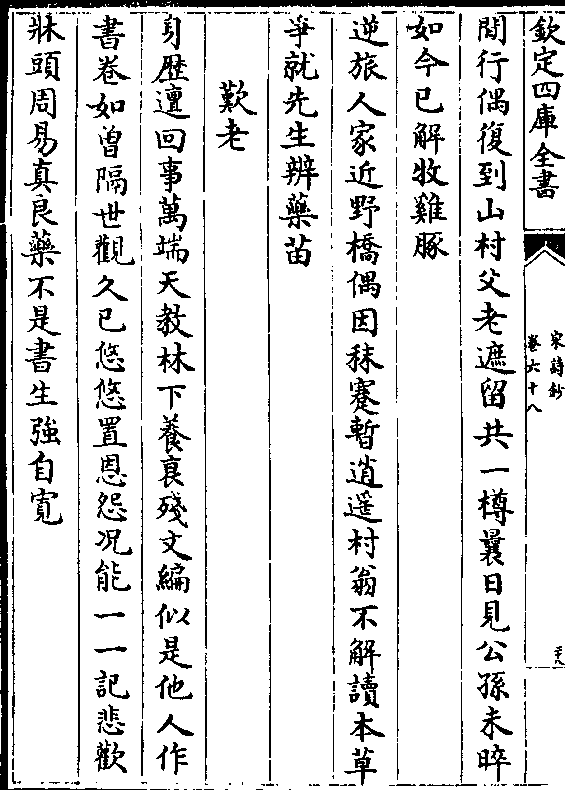 欽定四庫全書
宋詩鈔
卷六十八
閒行偶復到山村父老遮留共一樽曩日見公孫未晬
如今已解牧雞豚
逆旅人家近野橋偶因秣蹇暫逍遥村翁不解讀本草
爭就先生辨藥苗
歎老
身歴邅回事萬端天教林下養衰殘文編似是他人作
書卷如曾隔世觀久已悠悠置恩怨况能一一記悲歡
牀頭周易真良藥不是書生強自寛